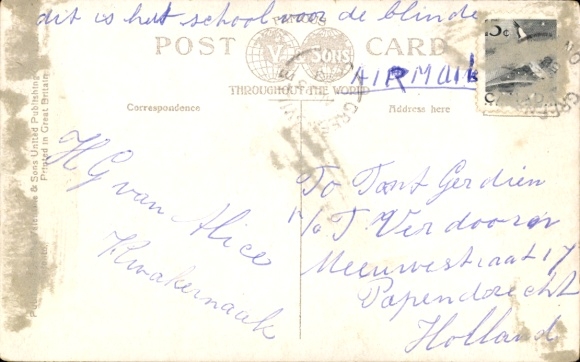 dit is het school voor de blinde
POST CARD
V & SONS
THROUGHOUT THE WORLD
AIRMAIL
5c
Correspondence
Address here
& Sons United Publishing
Printed in Great Britain
H G van Alice
Kwakernaak
To Tant Gerdien
c/o T Verdoorn
Meeuwestraat 17
Papendrecht
Holland